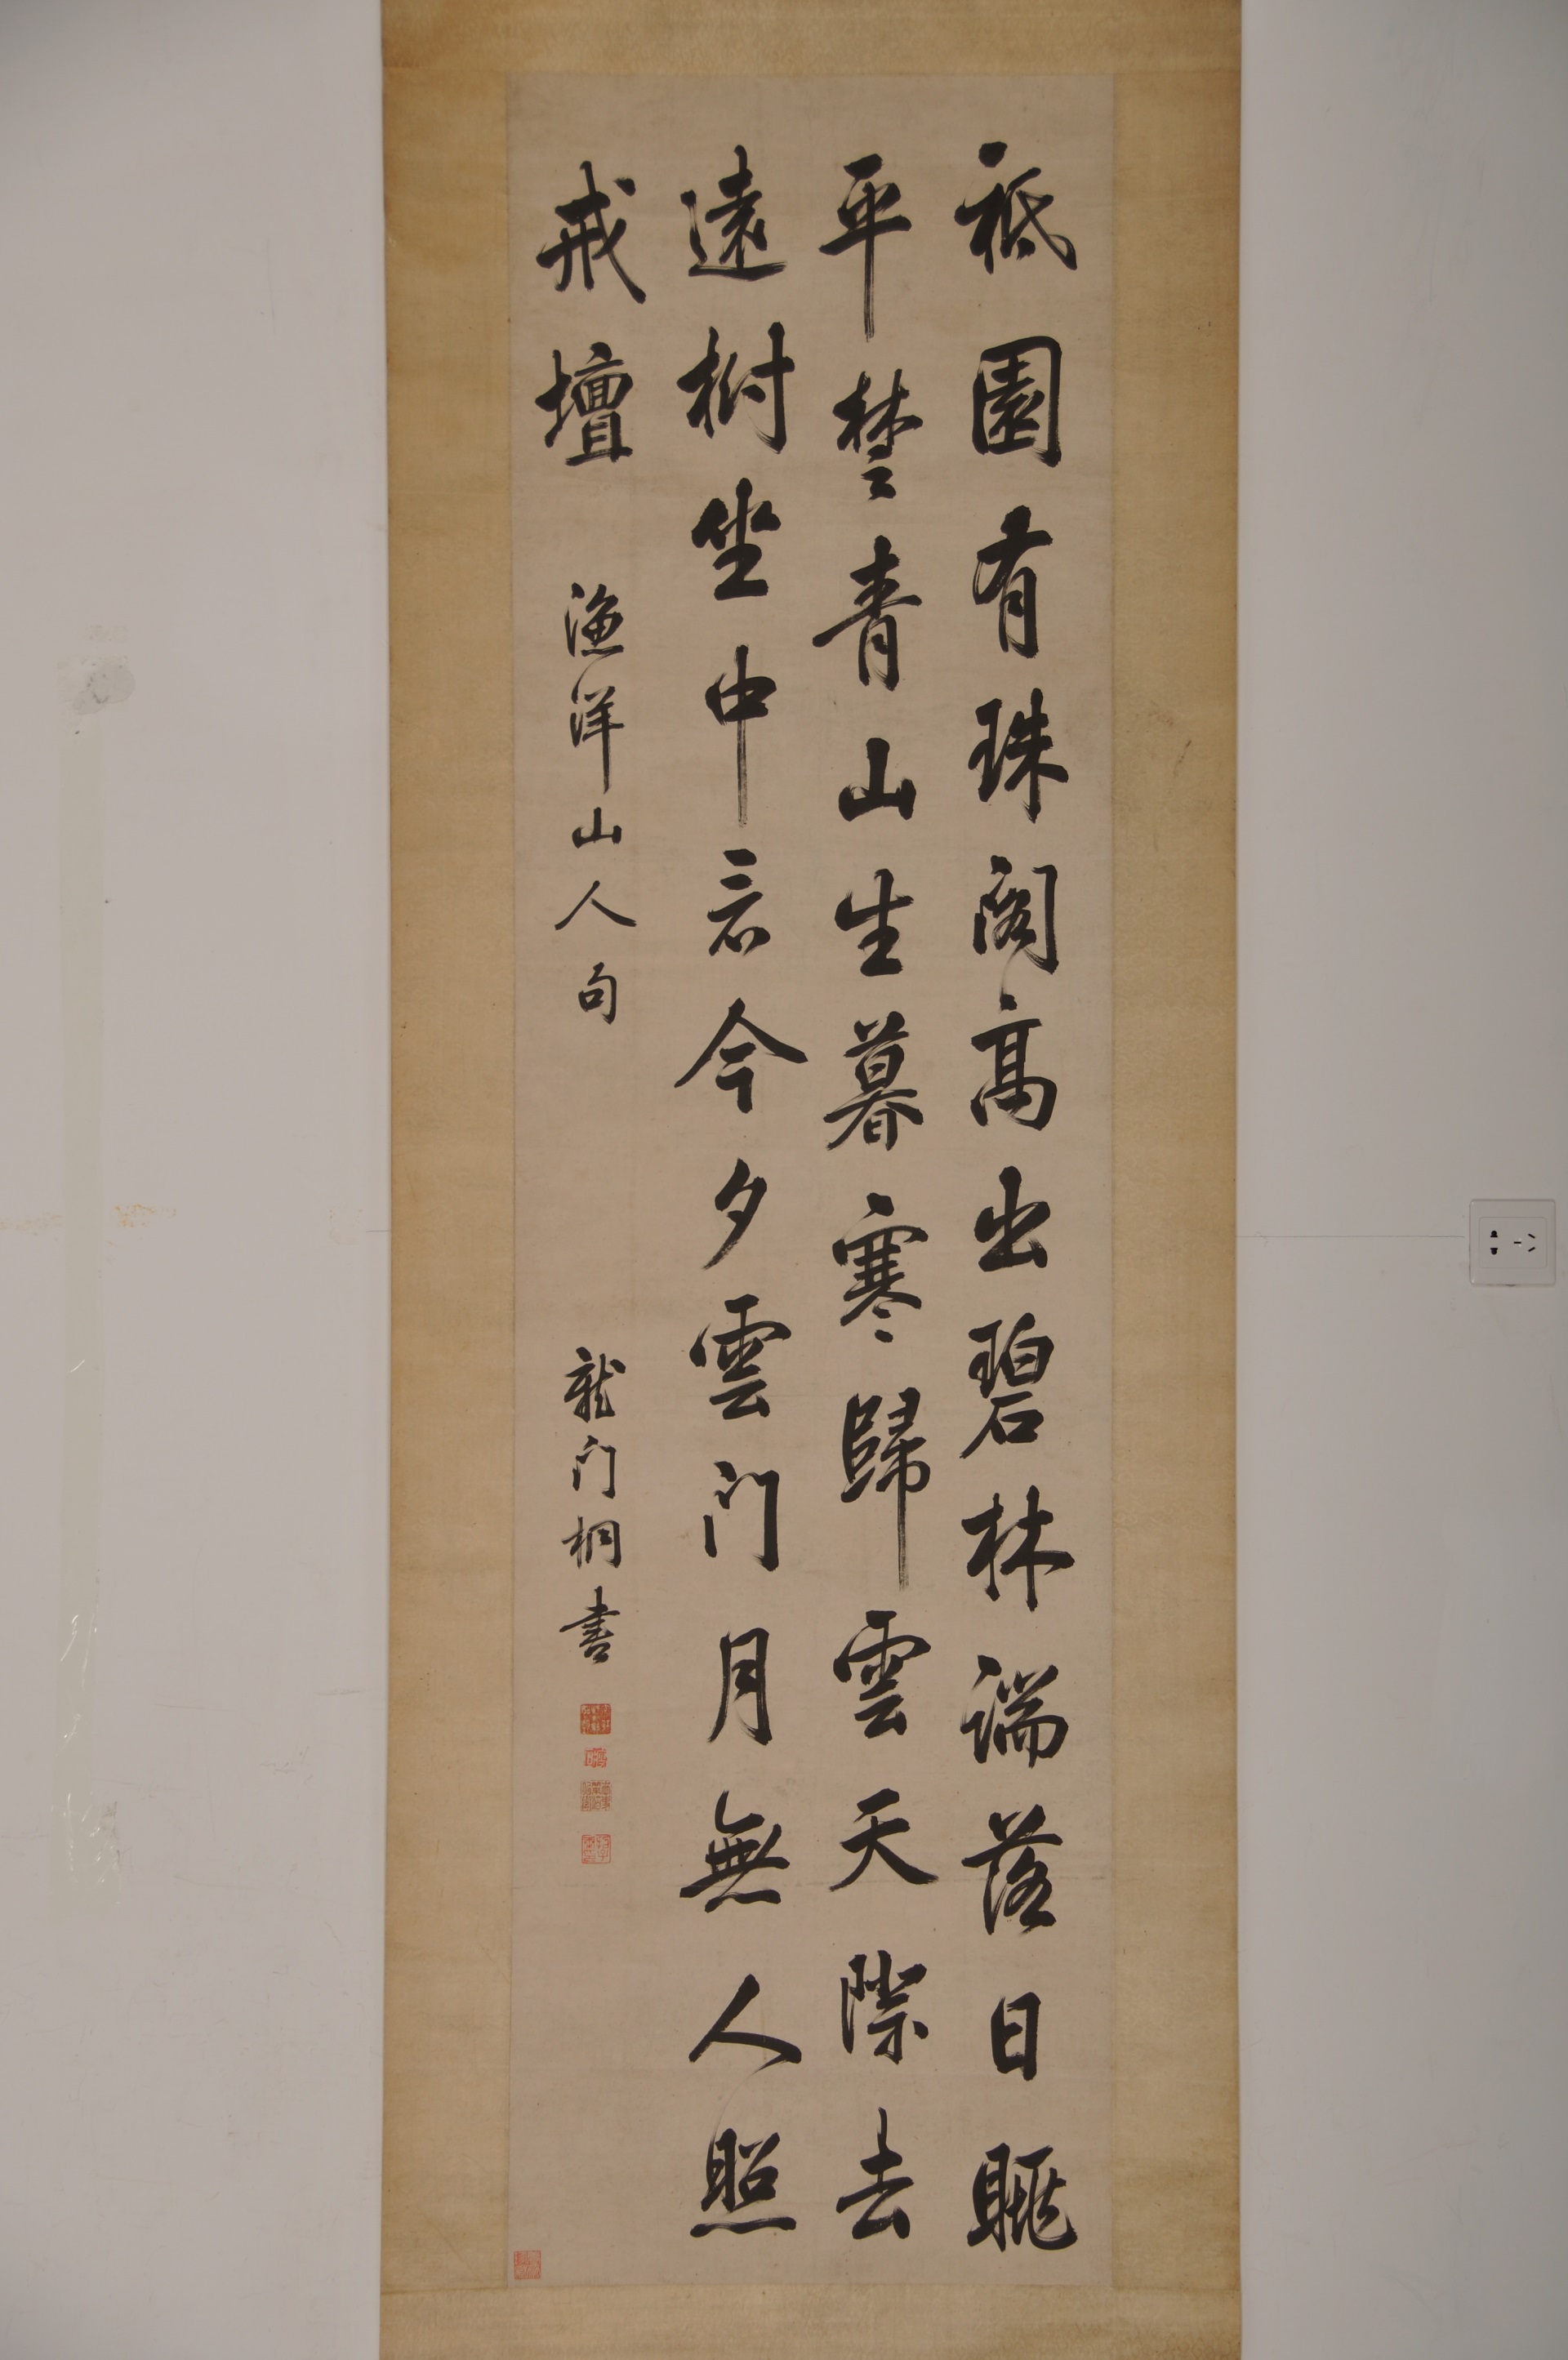 祇園有珠閣高出碧林端落日眺
平楚青山生暮寒歸雲天際去
遠樹坐中看今夕雲门月無人照
戒壇 漁洋山人句 龍门桐書